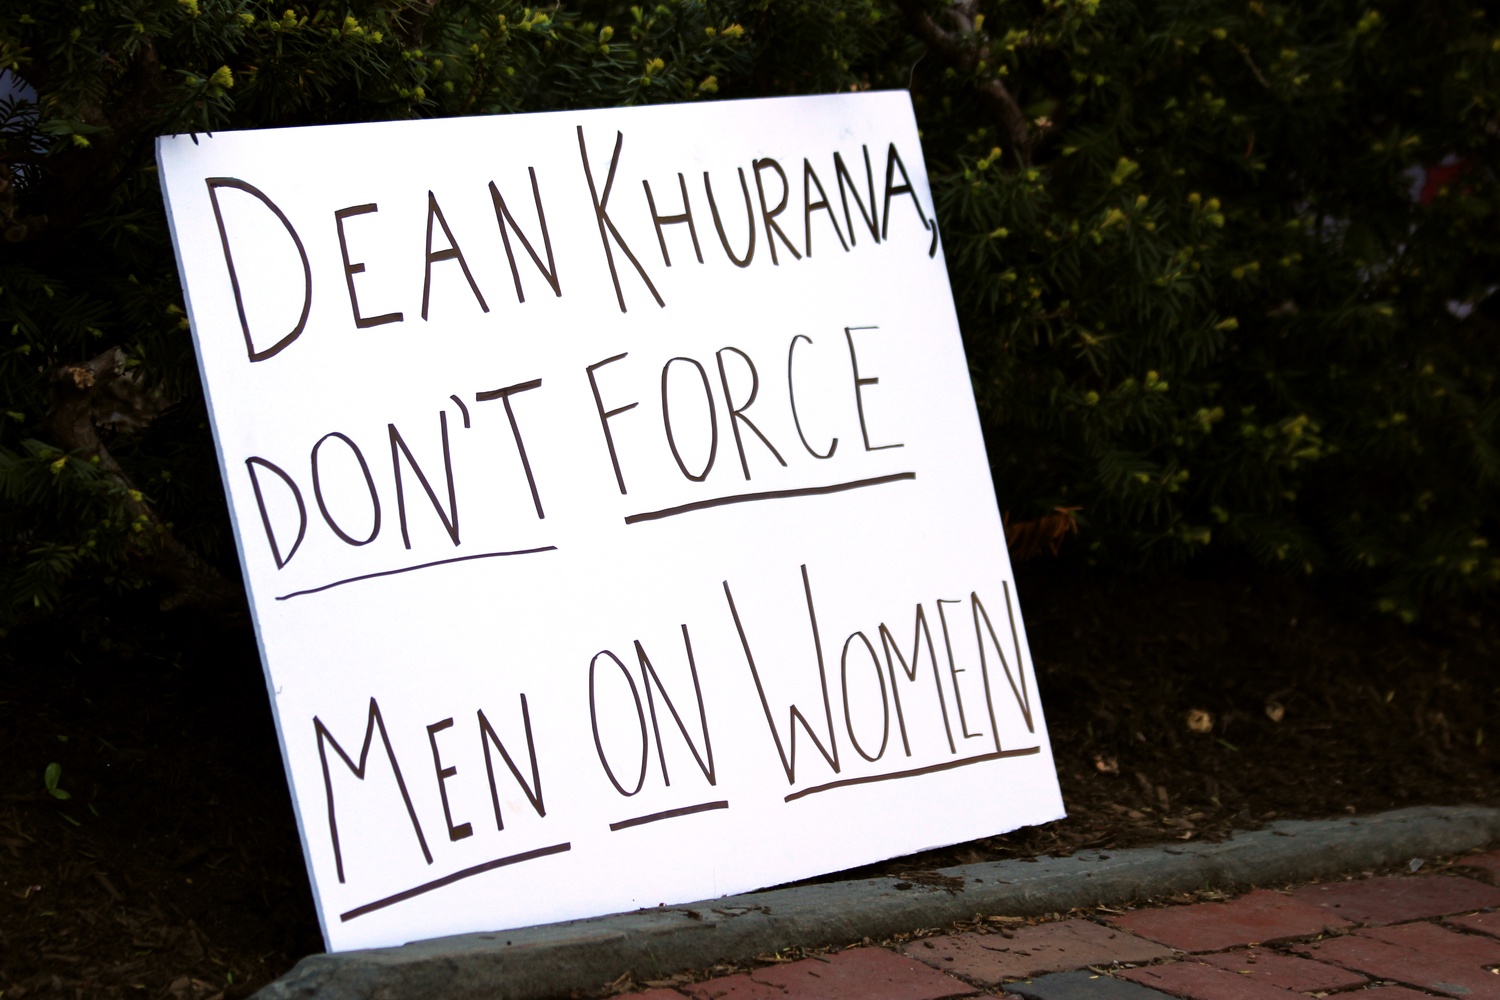 DEAN KHURANA,
DON'T FORCE
MEN ON WOMEN